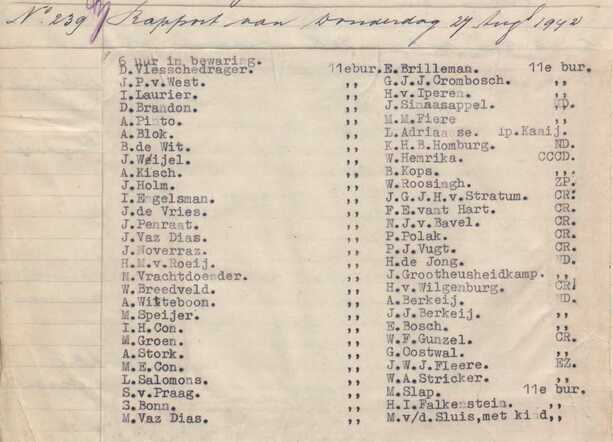 No. 239 Rapport van Donderdag 27 Aug. 1942
6 uur in bewaring.
D.Vlesschedrager. 11ebur. E.Brilleman. 11e bur.
J.P.v.West. ,, G.J.J.Crombosch. ,,
I.Laurier. ,, H.v.Iperen. ,,
D.Brandon. ,, J.Sinaasappel. ND.
A.Pinto. ,, M.M.Fiere ,,
A.Blok. ,, L.Adriaanse. ip.Kaaij.
B.de Wit. ,, K.H.B.Homburg. ND.
J.Weijel. ,, W.Hemrika. CCCD.
A.Kisch. ,, B.Kops. ,,
J.Holm. ,, W.Roosingh. ZP.
I.Engelsman. ,, J.G.J.H.v.Stratum. CR.
J.de Vries. ,, F.E.vant Hart. CR.
J.Penraat. ,, N.J.v.Bavel. CR.
J.Vaz Dias. ,, P.Polak. CR.
J.Noverraz. ,, P.J.Vugt. CR.
H.M.v.Roeij. ,, H.de Jong. ND.
N.Vrachtdoender. ,, J.Grootheusheidkamp. ,,
W.Breedveld. ,, H.v.Wilgenburg. CR.
A.Witteboon. ,, A.Berkeij. ND.
M.Speijer. ,, J.J.Berkeij. ,,
I.H.Con. ,, E.Bosch. ,,
M.Groen. ,, W.F.Gunzel. CR.
A.Stork. ,, G.Oostwal. ,,
M.E.Con. ,, J.W.J.Fleere. EZ.
L.Salomons. ,, W.A.Stricker. ,,
S.v.Praag. ,, M.Slap. 11e bur.
S.Bonn. ,, H.I.Falkenstein. ,,
M.Vaz Dias. ,, M.v/d.Sluis,met kind,,